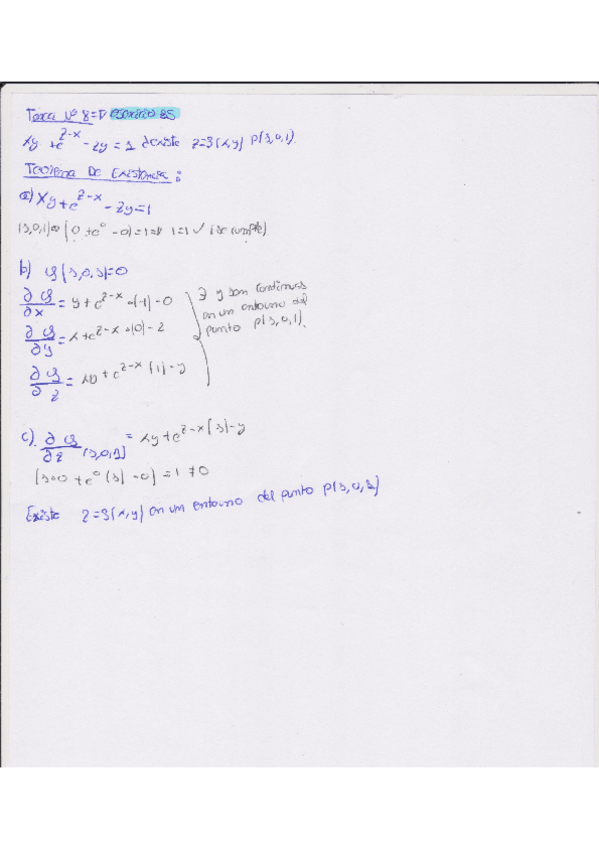 Tarea Nº 8 => ejercicio 25
xy + e^{z-x} - zy = 1 ¿existe z=f(x,y) P(1,0,1).
Teorema De Existencia:
a) xy + e^{z-x} - zy = 1
(1,0,1) => (0 + e^0 - 0) = 1 => 1=1 ✓ (se cumple)
b) G(1,0,1)=0
∂G/∂x = y + e^{z-x} · (-1) - 0
∂G/∂y = x + e^{z-x} · (0) - z
∂G/∂z = xy + e^{z-x} (1) - y
∃ y son continuas
en un entorno del
punto P(1,0,1).
c) ∂G/∂z (1,0,1) = xy + e^{z-x} (1) - y
(1·0 + e^0 (1) - 0) = 1 ≠ 0
Existe z=f(x,y) en un entorno del punto P(1,0,1)